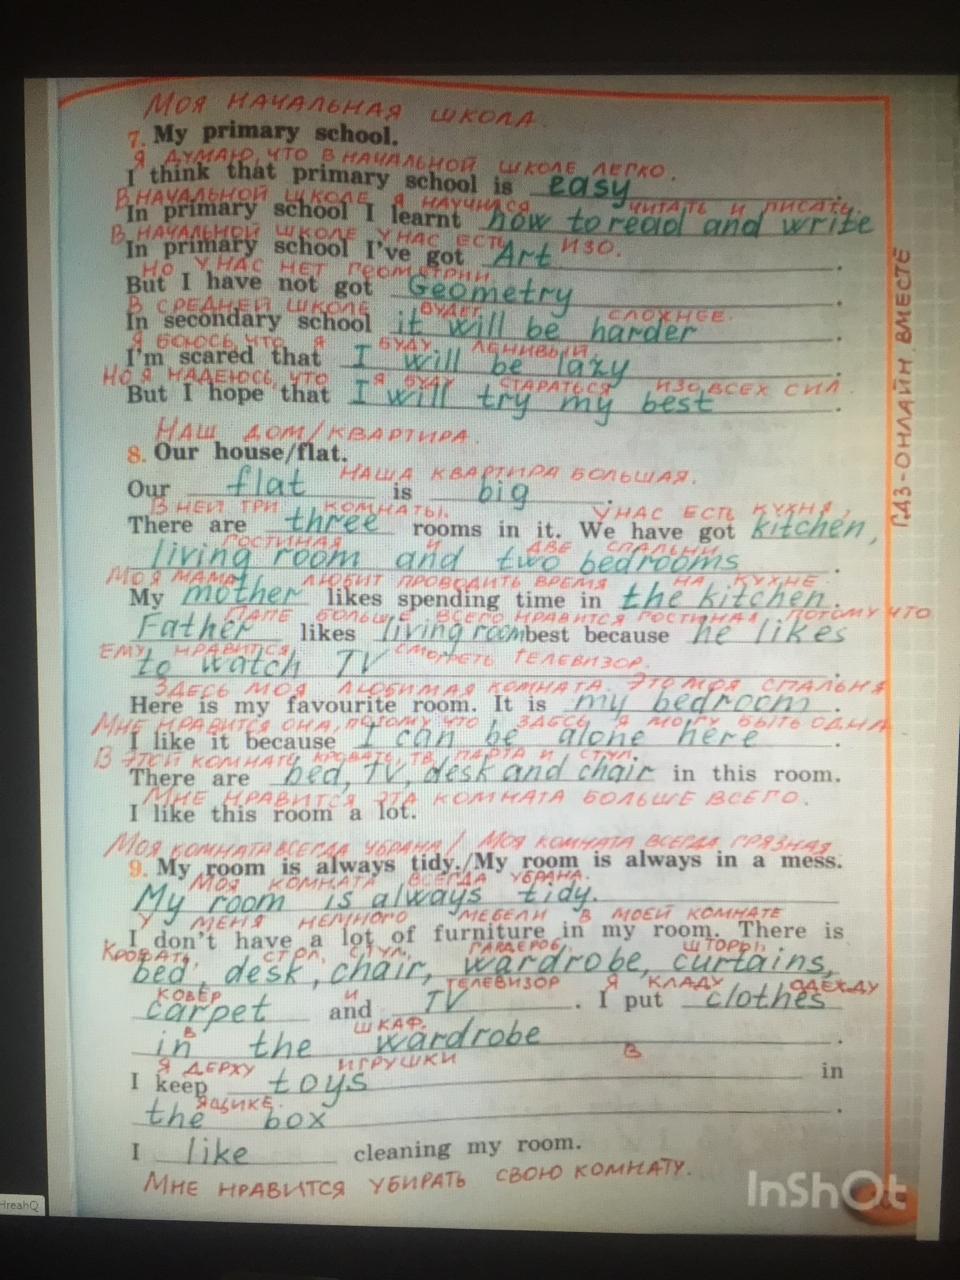 МОЯ НАЧАЛЬНАЯ ШКОЛА.
7. My primary school.
Я ДУМАЮ, ЧТО В НАЧАЛЬНОЙ ШКОЛЕ ЛЕГКО.
I think that primary school is easy.
В НАЧАЛЬНОЙ ШКОЛЕ Я НАУЧИЛСЯ ЧИТАТЬ И ПИСАТЬ.
In primary school I learnt how to read and write
В НАЧАЛЬНОЙ ШКОЛЕ У НАС ЕСТЬ ИЗО.
In primary school I've got Art.
НО У НАС НЕТ ГЕОМЕТРИИ
But I have not got Geometry.
В СРЕДНЕЙ ШКОЛЕ БУДЕТ СЛОЖНЕЕ.
In secondary school it will be harder.
Я БОЮСЬ, ЧТО Я БУДУ ЛЕНИВЫЙ.
I'm scared that I will be lazy.
НО Я НАДЕЮСЬ, ЧТО Я БУДУ СТАРАТЬСЯ ИЗО ВСЕХ СИЛ.
But I hope that I will try my best.
НАШ ДОМ/КВАРТИРА.
8. Our house/flat.
НАША КВАРТИРА БОЛЬШАЯ.
Our flat is big.
В НЕЙ ТРИ КОМНАТЫ. У НАС ЕСТЬ КУХНЯ,
There are three rooms in it. We have got kitchen,
ГОСТИНАЯ И ДВЕ СПАЛЬНИ
living room and two bedrooms.
МОЯ МАМА ЛЮБИТ ПРОВОДИТЬ ВРЕМЯ НА КУХНЕ.
My mother likes spending time in the kitchen.
ПАПЕ БОЛЬШЕ ВСЕГО НРАВИТСЯ ГОСТИНАЯ ПОТОМУ ЧТО
Father likes living room best because he likes
ЕМУ НРАВИТСЯ СМОТРЕТЬ ТЕЛЕВИЗОР.
to watch TV.
ЗДЕСЬ МОЯ ЛЮБИМАЯ КОМНАТА. ЭТО МОЯ СПАЛЬНЯ
Here is my favourite room. It is my bedroom.
МНЕ НРАВИТСЯ ОНА, ПОТОМУ ЧТО ЗДЕСЬ Я МОГУ БЫТЬ ОДНА
I like it because I can be alone here.
В ЭТОЙ КОМНАТЕ КРОВАТЬ, ТВ, ПАРТА И СТУЛ.
There are bed, TV, desk and chair in this room.
МНЕ НРАВИТСЯ ЭТА КОМНАТА БОЛЬШЕ ВСЕГО.
I like this room a lot.
МОЯ КОМНАТА ВСЕГДА УБРАНА / МОЯ КОМНАТА ВСЕГДА ГРЯЗНАЯ
9. My room is always tidy./My room is always in a mess.
МОЯ КОМНАТА ВСЕГДА УБРАНА.
My room is always tidy.
У МЕНЯ НЕМНОГО МЕБЕЛИ В МОЕЙ КОМНАТЕ
I don't have a lot of furniture in my room. There is
КРОВАТЬ, СТОЛ, СТУЛ, ГАРДЕРОБ, ШТОРЫ,
bed, desk, chair, wardrobe, curtains,
КОВЁР И ТЕЛЕВИЗОР Я КЛАДУ ОДЕЖДУ
carpet and TV. I put clothes
В ШКАФ.
in the wardrobe.
Я ДЕРЖУ ИГРУШКИ В
I keep toys in
ЯЩИКЕ.
the box.
I like cleaning my room.
МНЕ НРАВИТСЯ УБИРАТЬ СВОЮ КОМНАТУ.
ГДЗ-ОНЛАЙН ВМЕСТЕ
InShOt
HreahQ